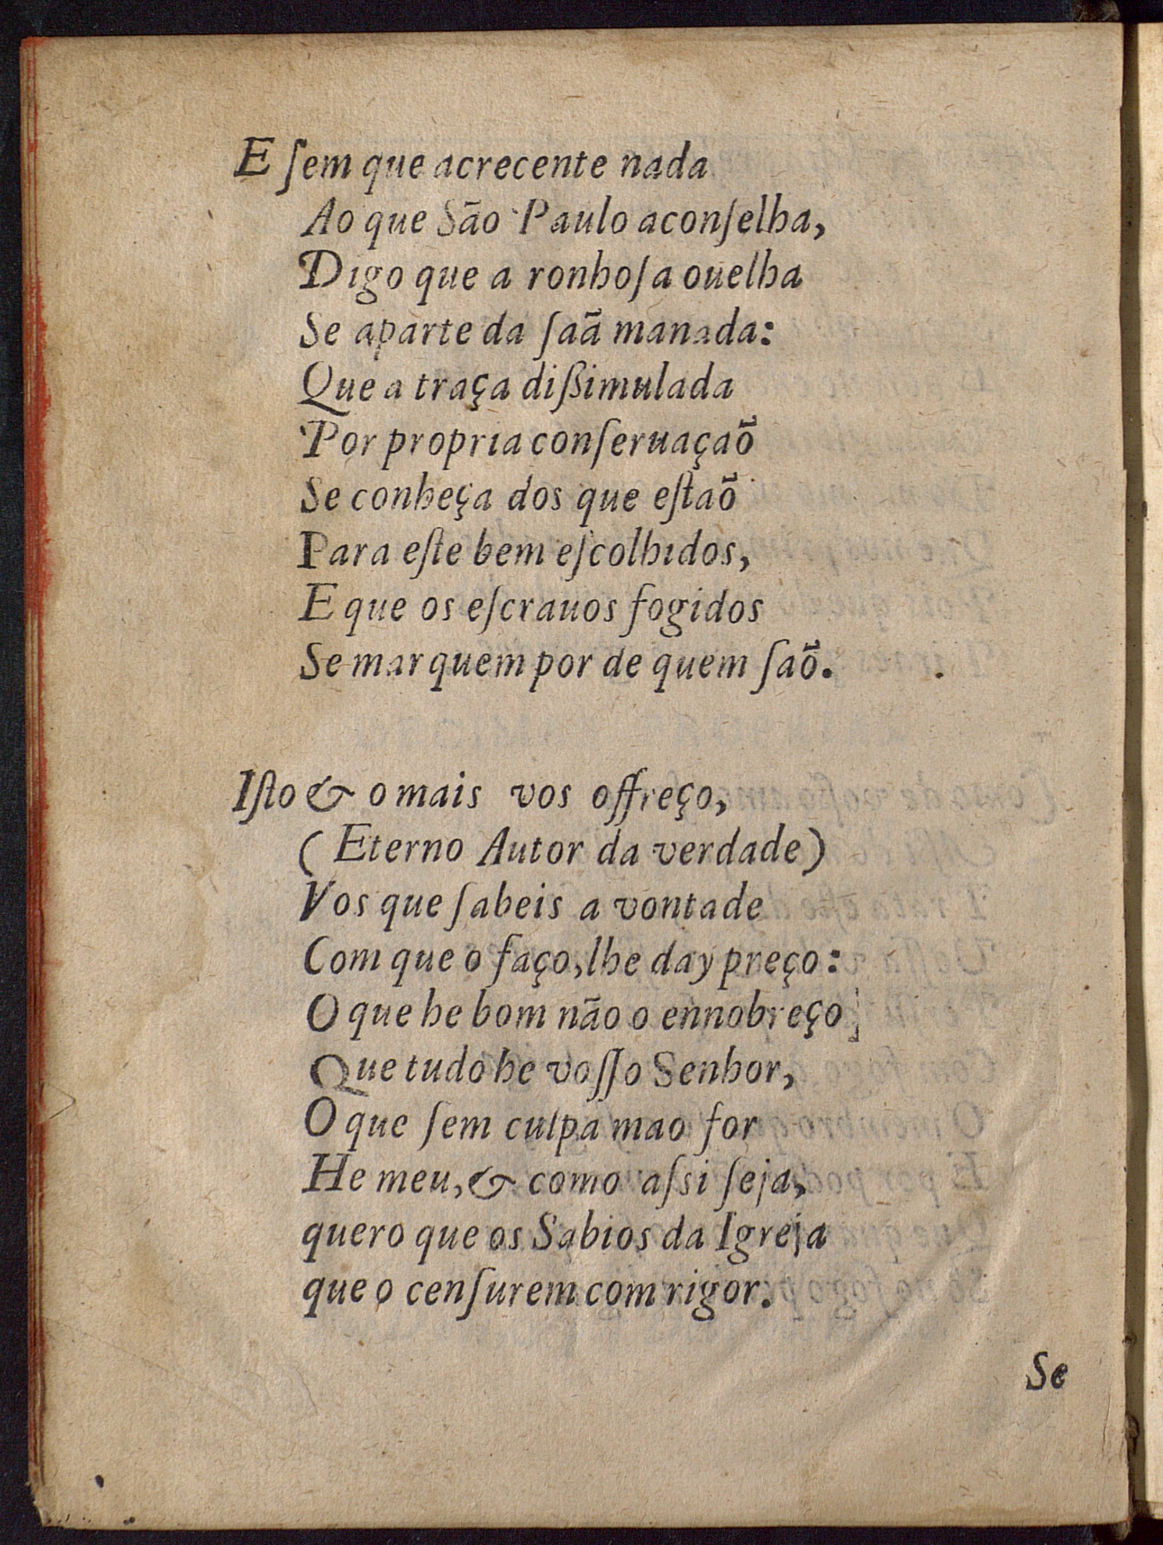 E ſem que acrecente nada
Ao que São Paulo aconſelha,
Digo que a ronhoſa ouelha
Se aparte da ſaã manada:
Que a traça dißimulada
Por propria conſeruaçaõ
Se conheça dos que eſtaõ
Para eſte bem eſcolhidos,
E que os eſcrauos fogidos
Se marquem por de quem ſaõ.
Iſto & o mais vos offreço,
( Eterno Autor da verdade)
Vos que ſabeis a vontade
Com que o faço, lhe day preço:
O que he bom não o ennobreço
Que tudo he voſſo Senhor,
O que ſem culpa mao for
He meu, & como aſsi ſeja,
quero que os Sabios da Igreja
que o cenſurem com rigor.
Se